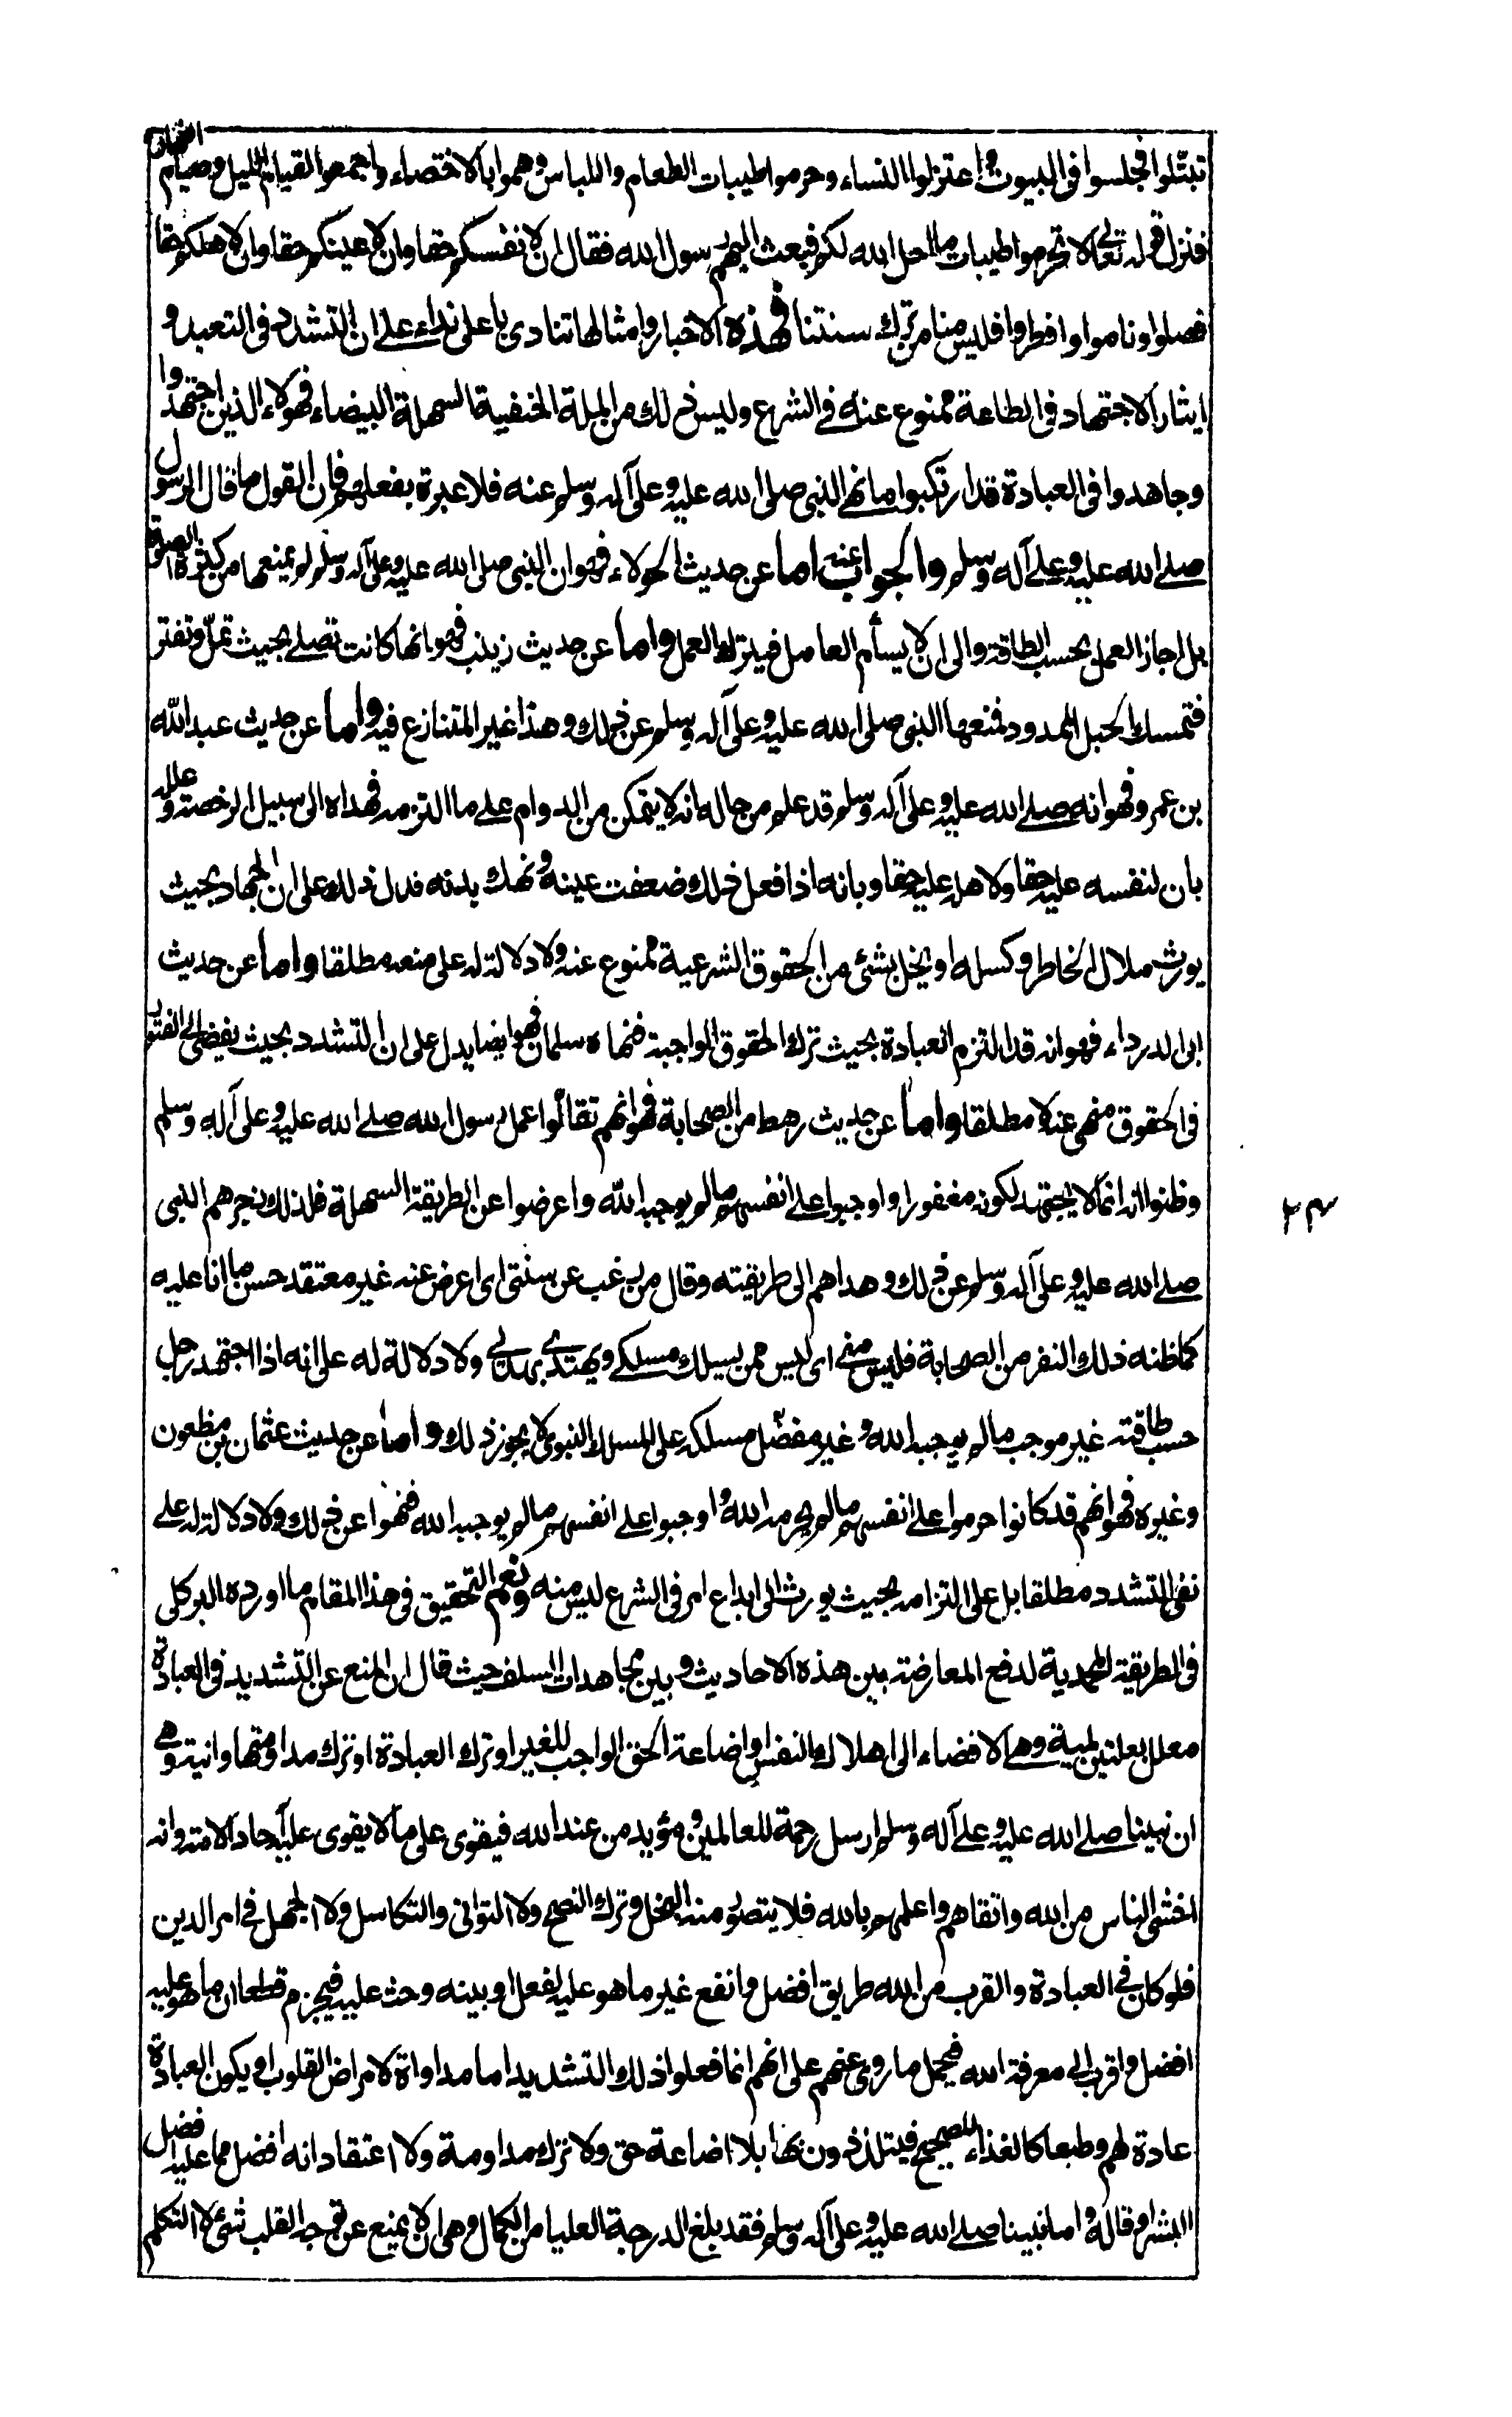 تبتلوا فجلسوا فى البيوت واعتزلوا النساء وحرموا طيبات الطعام واللباس وهموا بالاختصاء واجمعوا القيام الليل وصيام النهار
فنزل قوله تعالى لا تحرموا طيبات ما احل الله لكم فبعث اليهم رسول الله فقال ان لانفسكم حقا وان لاعينكم حقا وان لاهلكم حقا
فصلوا وناموا وافطروا فليس منا من ترك سنتنا فهذه الاخبار وامثالها تنادى باعلى نداء على ان التشدد فى التعبد و
ايثار الاجتهاد فى الطاعة ممنوع عنه فى الشرع وليس ذلك من الملة الحنفية السهلة البيضاء فهولاء الذين اجتهدوا
وجاهدوا فى العبادة قد ارتكبوا ما نهى النبى صلى الله عليه وعلى آله وسلم عنه فلا عبرة بفعلهم فان القول ما قال الرسول
صلى الله عليه وعلى آله وسلم والجواب عنه اما عن حديث الحولاء فهو ان النبى صلى الله عليه وعلى آله وسلم لم يمنعها من كثرة الصلوة
بل اجاز العمل بحسب الطاقة والى ان لا يسأم العامل فيترك العمل واما عن حديث زينب فهو انها كانت تصلى بحيث تمل وتفتر
فتمسك الحبل الممدود فمنعها النبى صلى الله عليه وعلى آله وسلم عن ذلك وهذا غير المتنازع فيه واما عن حديث عبد الله
بن عمرو فهو انه صلى الله عليه وعلى آله وسلم قد علم من حاله انه لا يتمكن من الدوام على ما التزمه فهداه الى سبيل الرخصة وعلله
بان لنفسه عليه حقا ولاهله عليه حقا وبانه اذا فعل ذلك ضعفت عينه ونهك بدنه فدل ذلك على ان الجهاد بحيث
يورث ملال الخاطر وكسله او يخل بشئ من الحقوق الشرعية ممنوع عنه ولا دلالة له على منعه مطلقا واما عن حديث
ابى الدرداء فهو انه قد التزم العبادة بحيث ترك الحقوق الواجبة فنهاه سلمان فهو ايضا يدل على ان التشدد بحيث يفضى الى الفتور
فى الحقوق منهى عنه لا مطلقا واما عن حديث رهط من الصحابة فهو انهم تقالوا عمل رسول الله صلى الله عليه وعلى آله وسلم
وظنوا انه انما لا يجتهد لكونه مغفورا واوجبوا على انفسهم ما لم يوجبه الله واعرضوا عن الطريقة السهلة فلذلك زجرهم النبى
صلى الله عليه وعلى آله وسلم عن ذلك وهداهم الى طريقته وقال من رغب عن سنتى اى اعرض عنه غير معتقد حسن ما انا عليه
كما ظنه ذلك النفر من الصحابة فليس منى اى ليس ممن يسلك مسلكى ويهتدى بهديى ولا دلالة له على انه اذا اجتهد رجل
حسب طاقته غير موجب ما لم يوجبه الله وغير مفضل مسلكه على المسلك النبوى لا يجوز ذلك واما عن حديث عثمان بن مظعون
وغيره فهو انهم قد كانوا حرموا على انفسهم ما لم يحرمه الله واوجبوا على انفسهم ما لم يوجبه الله فنهوا عن ذلك ولا دلالة له على
نفى التشدد مطلقا بل على التزامه بحيث يورث الى ابداع امر فى الشرع ليس منه ونعم التحقيق فى هذا المقام ما اورده البركلى
فى الطريقة المحمدية لدفع المعارضة بين هذه الاحاديث وبين مجاهدات السلف حيث قال ان المنع عن التشديد فى العبادة
معلل بعلتين لمية وهى الافضاء الى اهلاك النفس او اضاعة الحق الواجب للغير او ترك العبادة او ترك مداومتها وانية وهى
ان نبينا صلى الله عليه وعلى آله وسلم ارسل رحمة للعالمين ومؤيد من عند الله فيقوى على ما لا يقوى عليه آحاد الامة وانه
اخشى الناس من الله واتقاهم واعلمهم بالله فلا يتصور منه البخل وترك النصح ولا التوانى والتكاسل ولا الجهل فى امر الدين
فلو كان فى العبادة والقرب من الله طريق افضل وانفع غير ما هو عليه لفعل او بينه وحث عليه فيجزم قطعا ان ما هو عليه
افضل واقرب الى معرفة الله فيحمل ما روى عنهم على انهم انما فعلوا ذلك التشديد اما مداواة لامراض القلوب او يكون العبادة
عادة لهم وطبعا كالغذاء للصحيح فيتلذذون بها بلا اضاعة حق ولا ترك مداومة ولا اعتقاد انه افضل مما عليه افضل
البشر او قاله واما نبينا صلى الله عليه وعلى آله وسلم فقد بلغ الدرجة العليا من الكمال وهى ان لا يمنع عن توجه القلب شئ لا التكلم